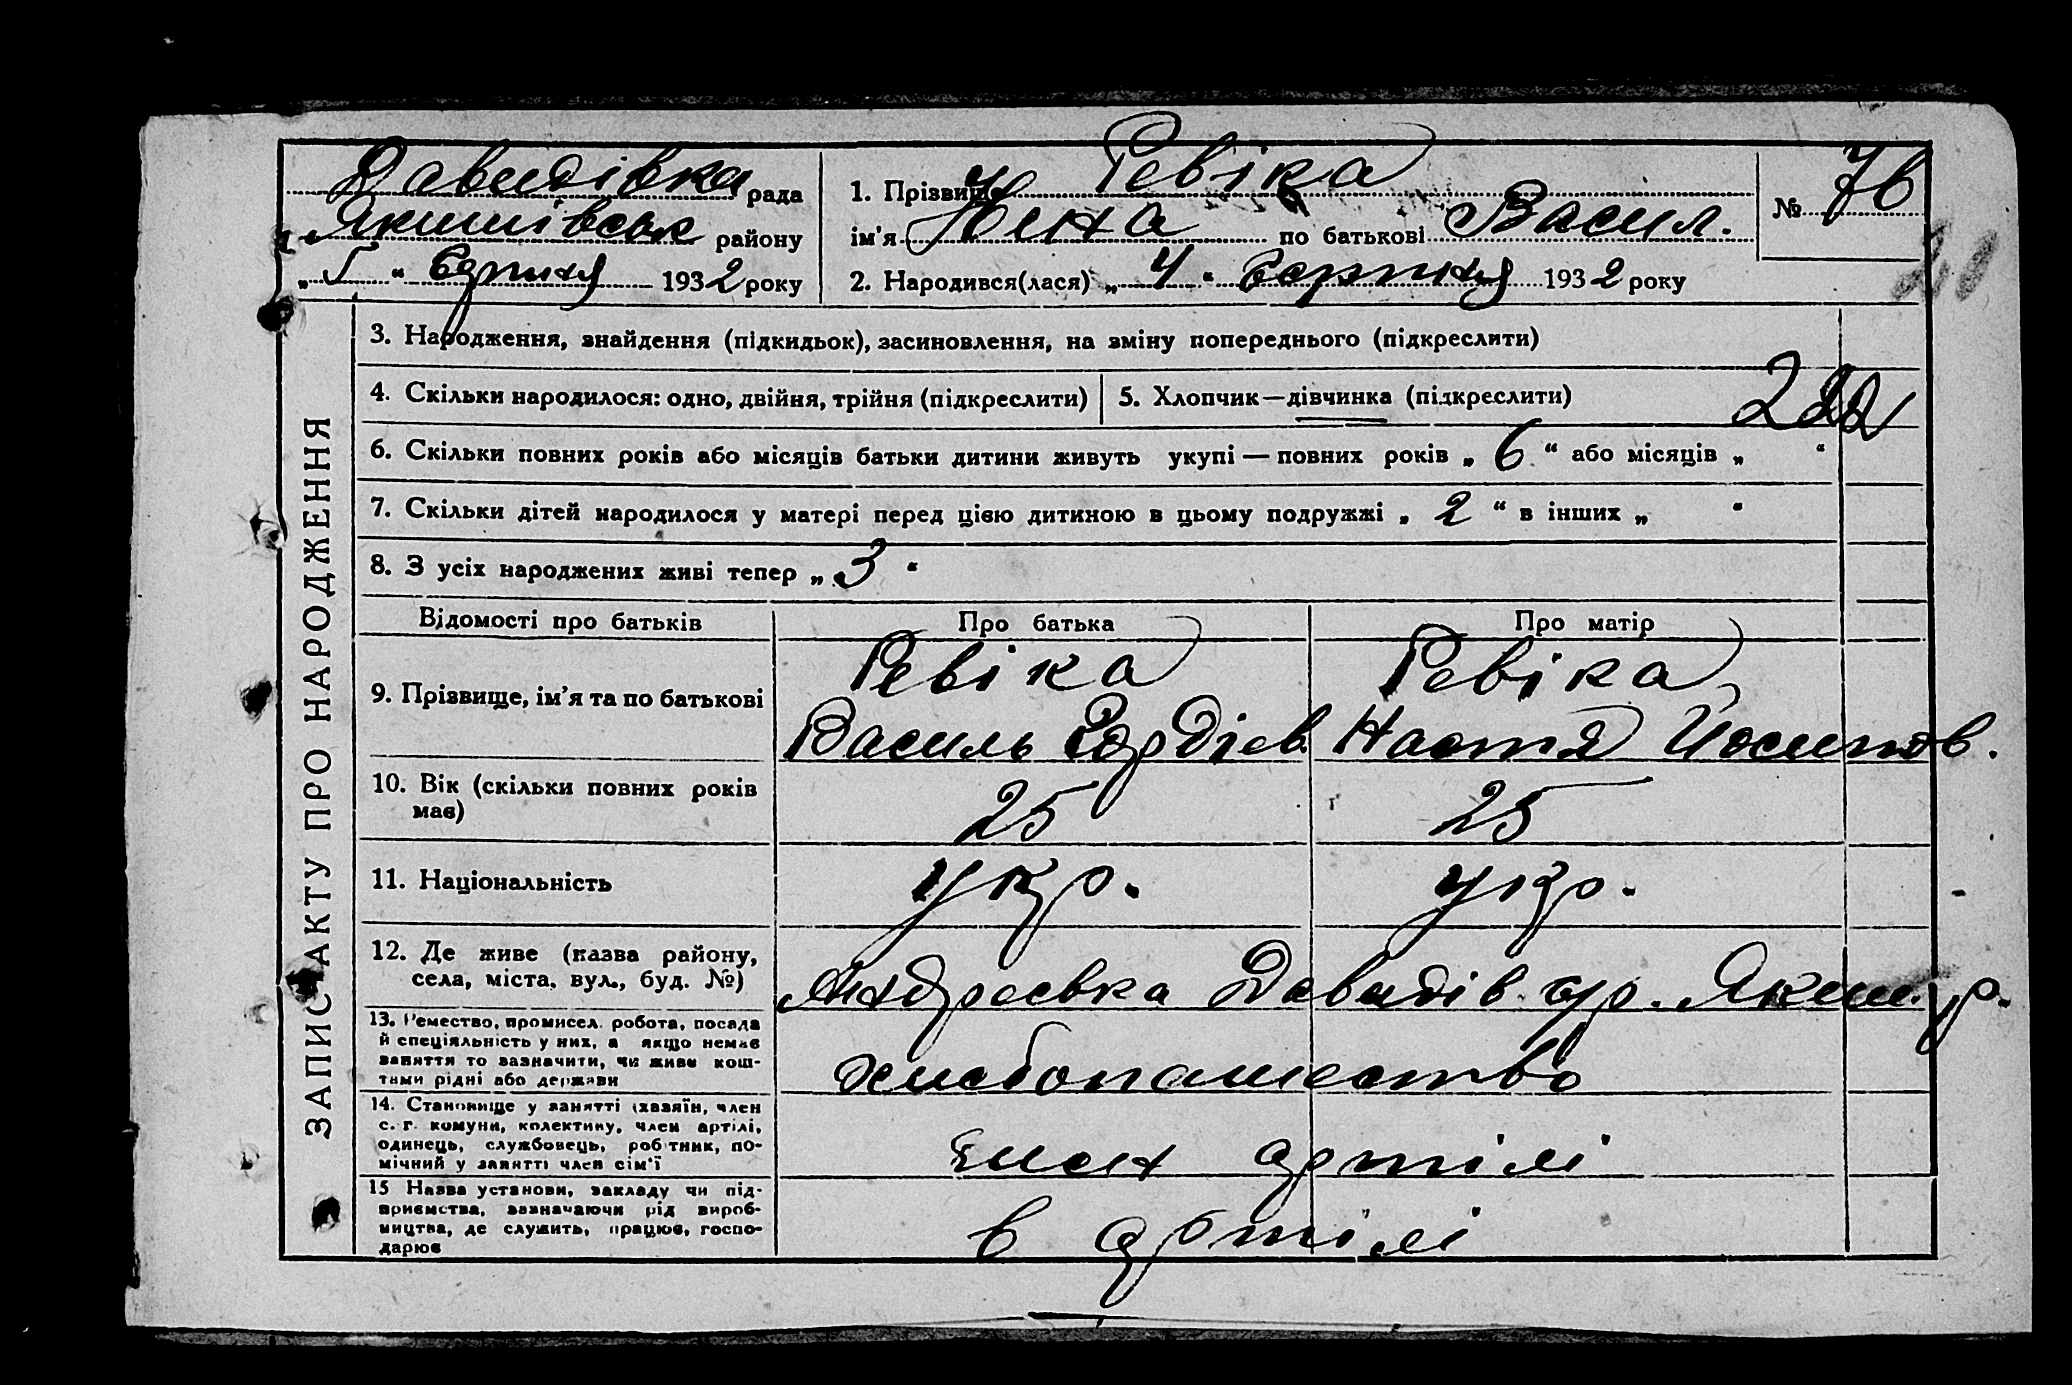 Давидівка рада
Якимівськ району
„ 5 “ Серпня 1932 року
1. Прізвище Ревіка
ім'я Нина по батькові Васил.
2. Народився(лася) „ 4 “ Серпня 1932 року
№ 76
ЗАПИС АКТУ ПРО НАРОДЖЕННЯ
3. Народження, знайдення (підкидьок), засиновлення, на зміну попереднього (підкреслити)
4. Скільки народилося: одно, двійня, трійня (підкреслити)
5. Хлопчик — дівчинка (підкреслити)
6. Скільки повних років або місяців батьки дитини живуть укупі — повних років „ 6 “ або місяців „ “
7. Скільки дітей народилося у матері перед цією дитиною в цьому подружжі „ 2 “ в інших „ “
8. З усіх народжених живі тепер „ 3 “
Відомості про батьків Про батька Про матір
9. Прізвище, ім'я та по батькові
Ревіка
Василь Гордіев.
Ревіка
Настя Йосипов.
10. Вік (скільки повних років
має)
25 25
11. Національність укр. укр.
12. Де живе (назва району,
села, міста, вул., буд. №)
Андреевка Давидів. с/р. Яким. р.
13. Ремество, промисел, робота, посада
й спеціяльність у них, а якщо немає
заняття то зазначити, чи живе кош-
тами рідні або держави
хлебопашество
14. Становище у занятті (хазяїн, член
с.-г. комуни, колективу, член артілі,
одинець, службовець, робітник, по-
мічний у занятті член сім'ї
член артілі
15 Назва установи, закладу чи під-
приємства, зазначаючи рід вироб-
ництва, де служить, працює, госпо-
дарює
в артілі